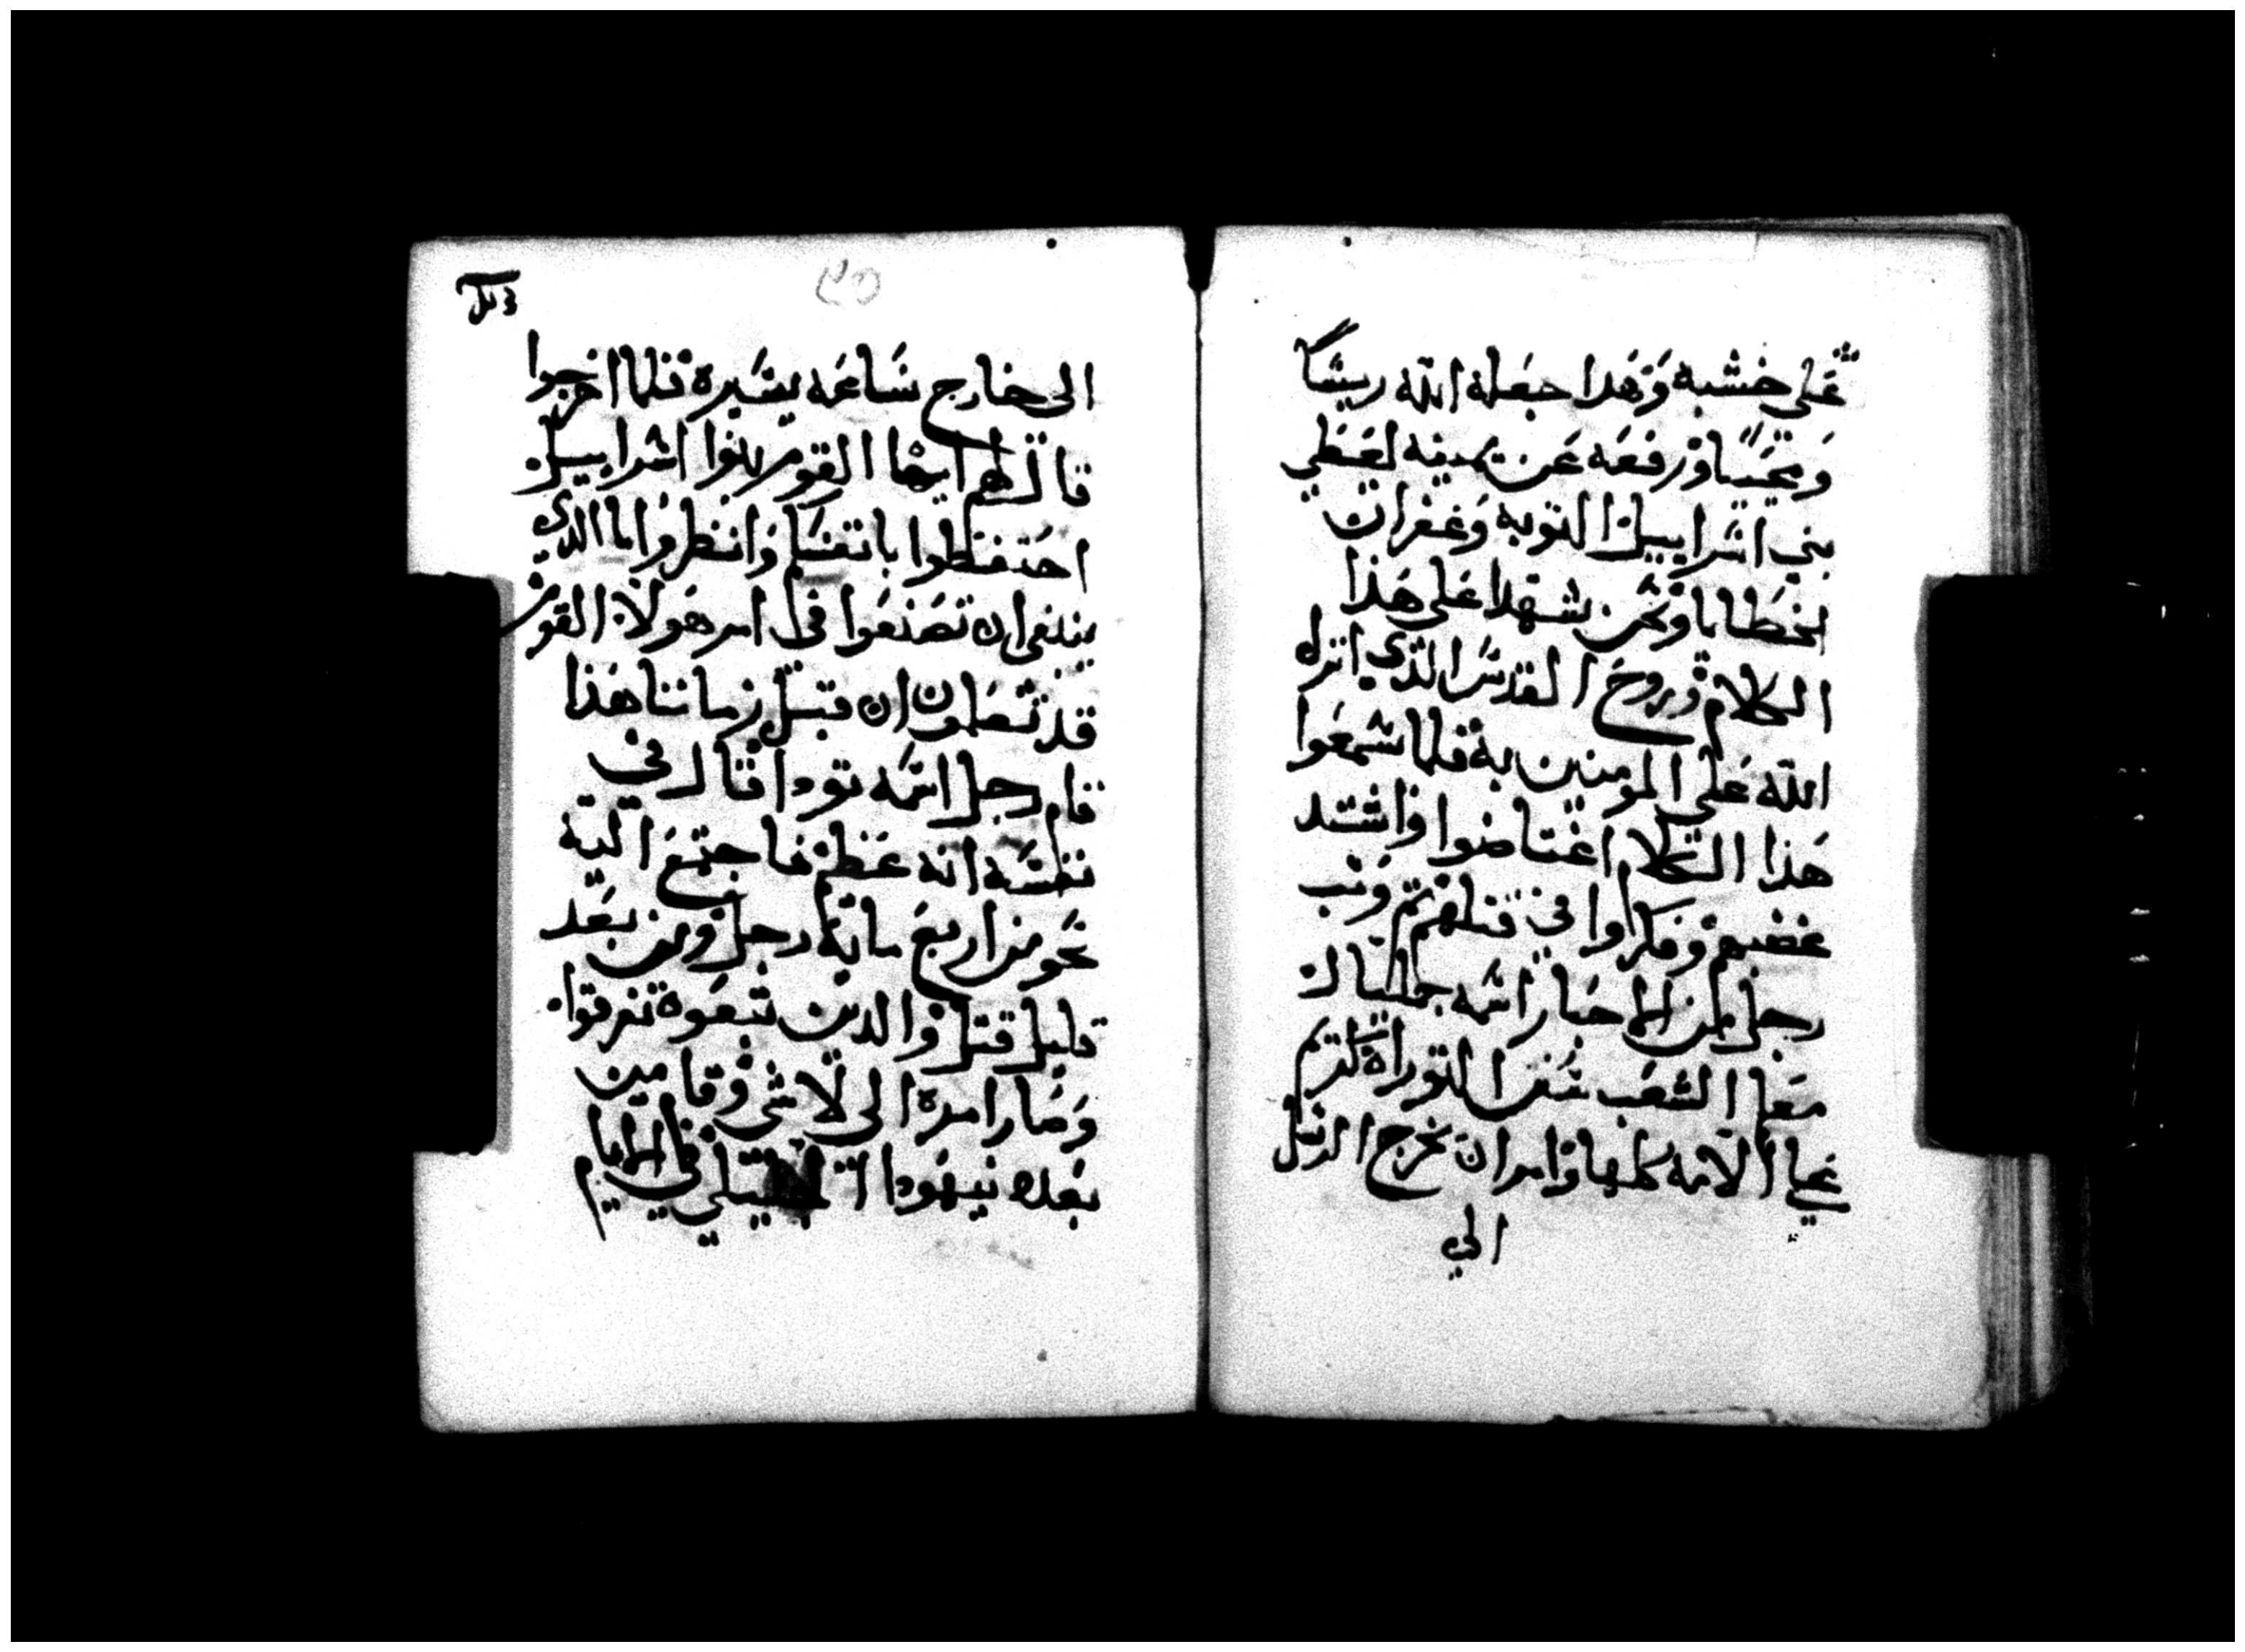 علي خشبه وهدا جعله الله ريسا
ومحييا ورفعه عن يمينه ليعطي
بني اسراييل التوبه وغفران
الخطايا ونحن شهدا علي هذا
الكلام وروح القدس الذي انزل
الله علي المومنين به فلما سمعوا
هذا الكلام اغتاضوا واشتد
غضبهم وفكروا في قتلهم وثب
رجل من الاحبار اسمه جمليال
معلم الشعب سفر التوراة لتريم
علي الامه كلها وامر ان نخرج الرسل
الي
الي خارج ساعه يسيره فلما اخرجوا
قال لهم ايها القوم بنوا اسراييل
احتفظوا بانفسكم وانظروا ما الدي
ينبغي ان تصنعوا في امر هولا القوم
قد تعلمون ان قبل زماننا هذا
قام رجل اسمه تودا قال في
نفسه انه عظيم فاجتمع اليه
نحو من اربع مايه رجل ومن بعد
قليل قتل والدين تبعوه تفرقوا
وصار امره الي لا شي وقام من
بعده يهودا الجليلي في الايام